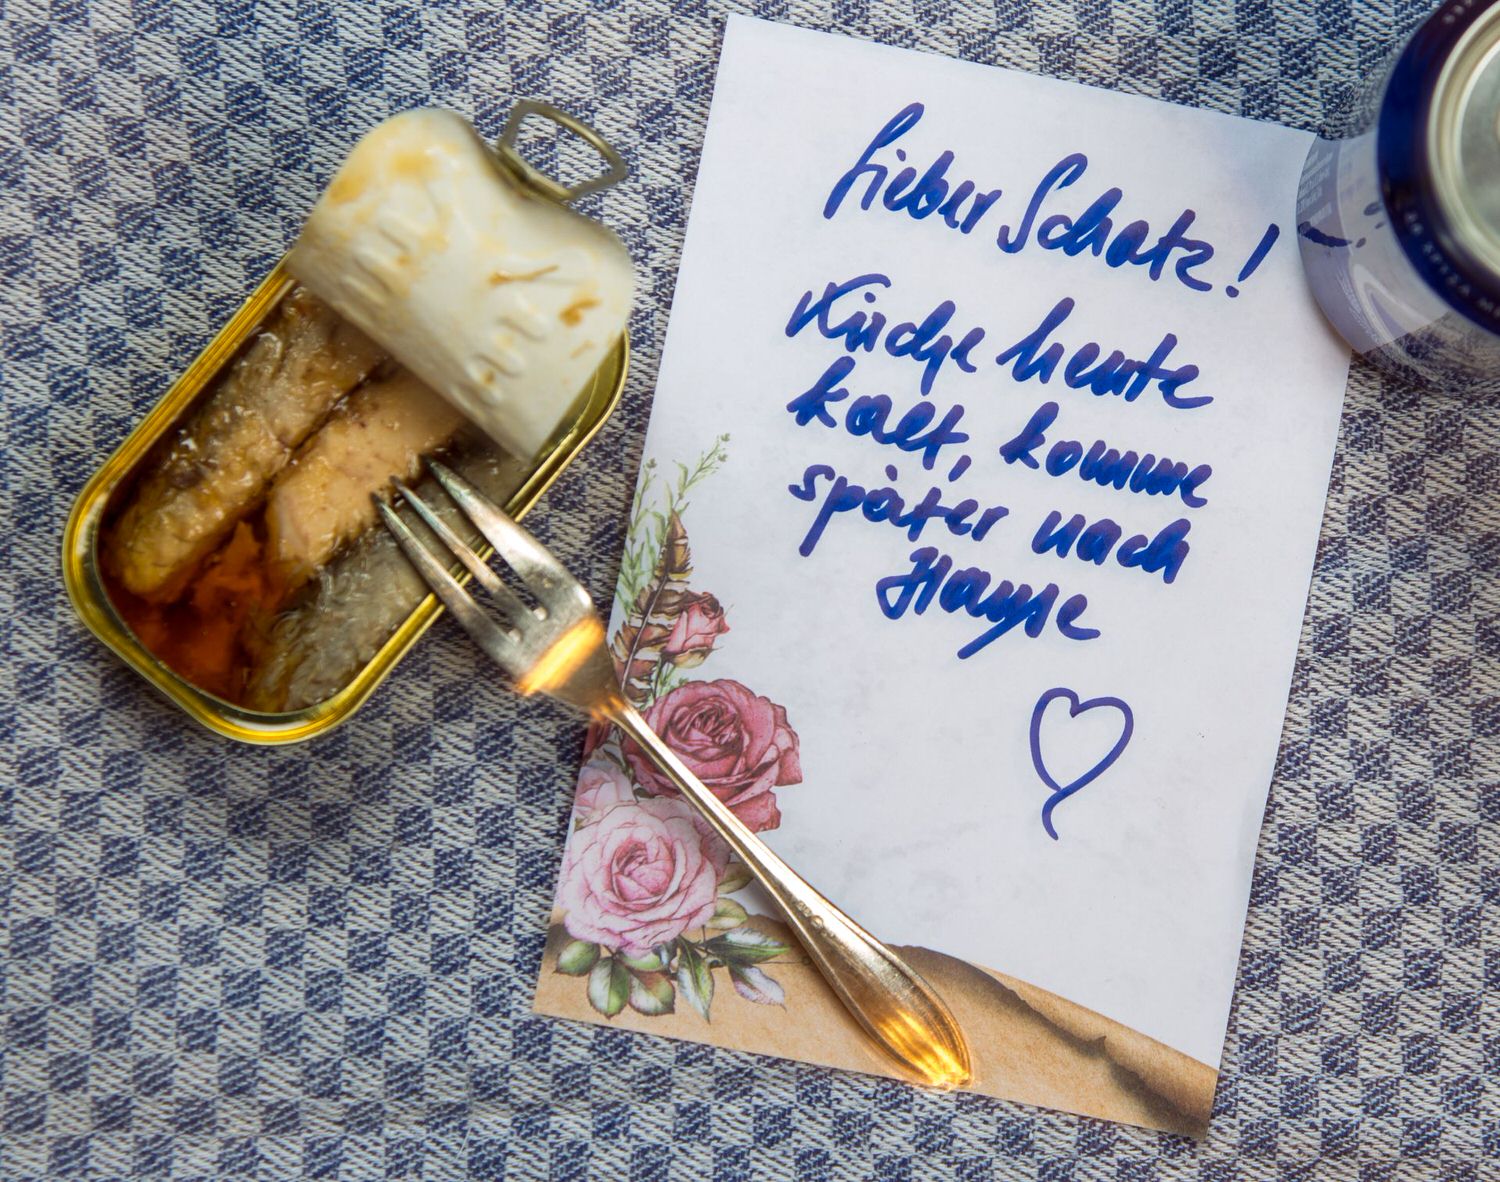 Lieber Schatz!
Küche heute
kalt, komme
später nach
Hause